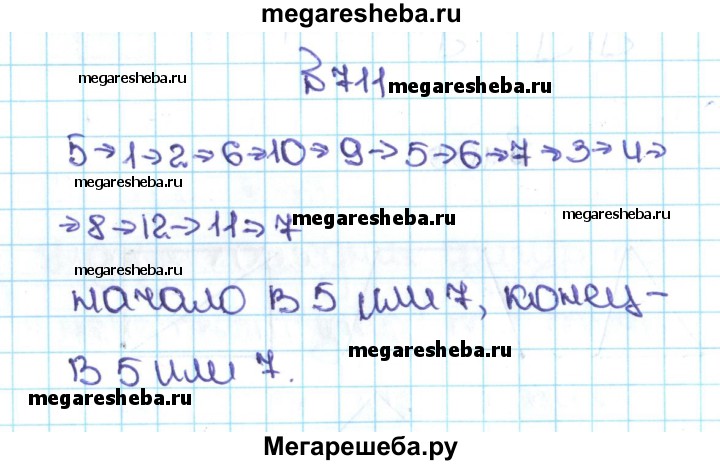 megaresheba.ru
megaresheba.ru
В 711 megaresheba.ru
5→1→2→6→10→9→5→6→7→3→4→
megaresheba.ru
→8→12→11→7 megaresheba.ru megaresheba.ru
megaresheba.ru
начало в 5 или 7, конец-
megaresheba.ru
в 5 или 7.
megaresheba.ru
Мегарешеба.ру